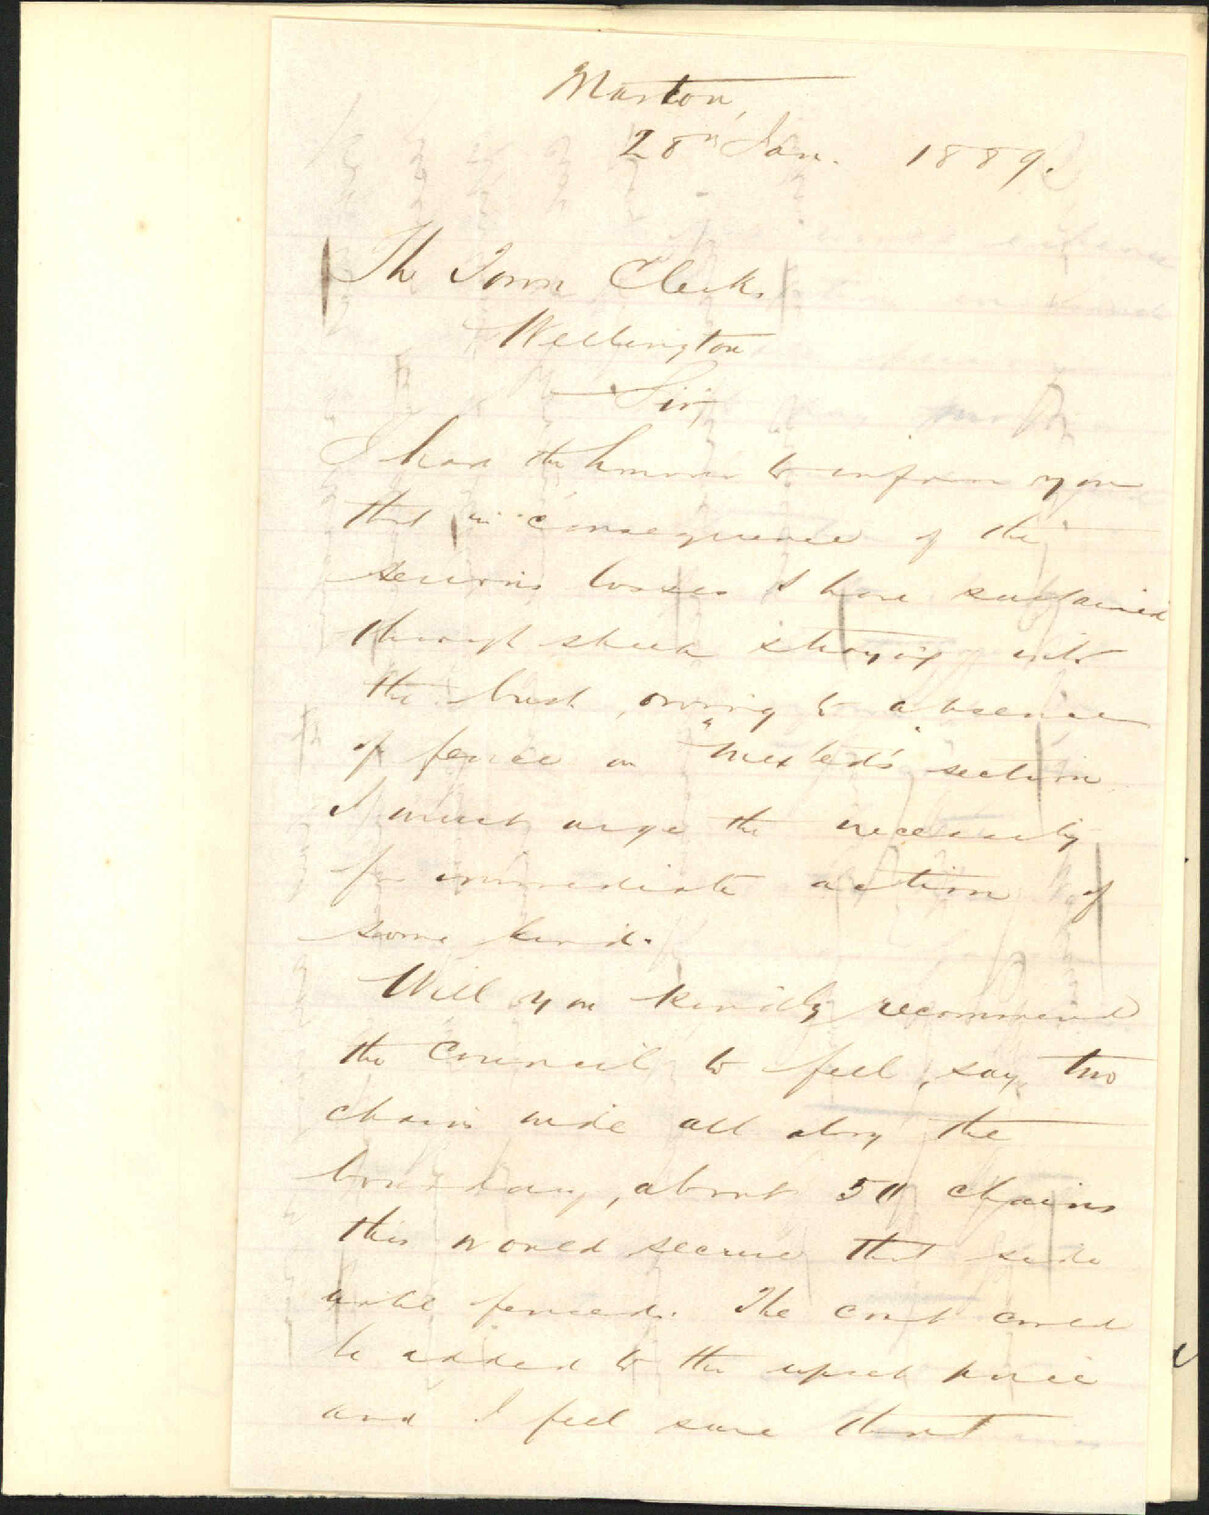 Marton,
28th Jan. 1889.
The Town Clerk,
Wellington
Sir
I had the honour to inform you
that in consequence of the
serious losses I have sustained
through sheep straying into
the bush, owing to absence
of fence on "Mexted's" section
I must urge the necessity
for immediate action of
some kind.
Will you kindly recommend
the Council to fell, say, two
chains wide all along the
boundary, about 50 chains
this would secure that side
until fenced. The cost could
be added to the upset price
and I feel sure that